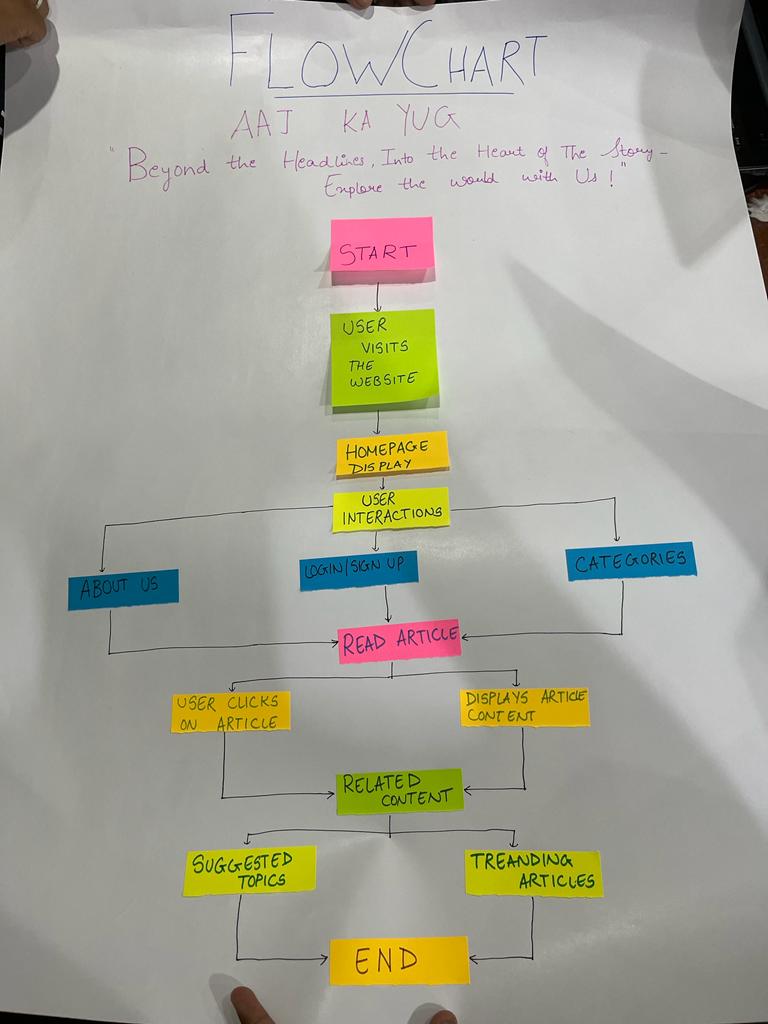 FLOWCHART
AAJ KA YUG
"Beyond the Headlines, Into the Heart of The Story -
Explore the would with Us!"
START
USER
VISITS
THE
WEBSITE
HOMEPAGE
DISPLAY
USER
INTERACTIONS
ABOUT US
LOGIN/SIGN UP
CATEGORIES
READ ARTICLE
USER CLICKS
ON ARTICLE
DISPLAYS ARTICLE
CONTENT
RELATED
CONTENT
SUGGESTED
TOPICS
TREANDING
ARTICLES
END